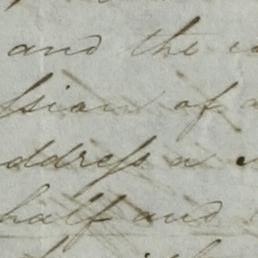 and the
ssion of a
ddress a
half and